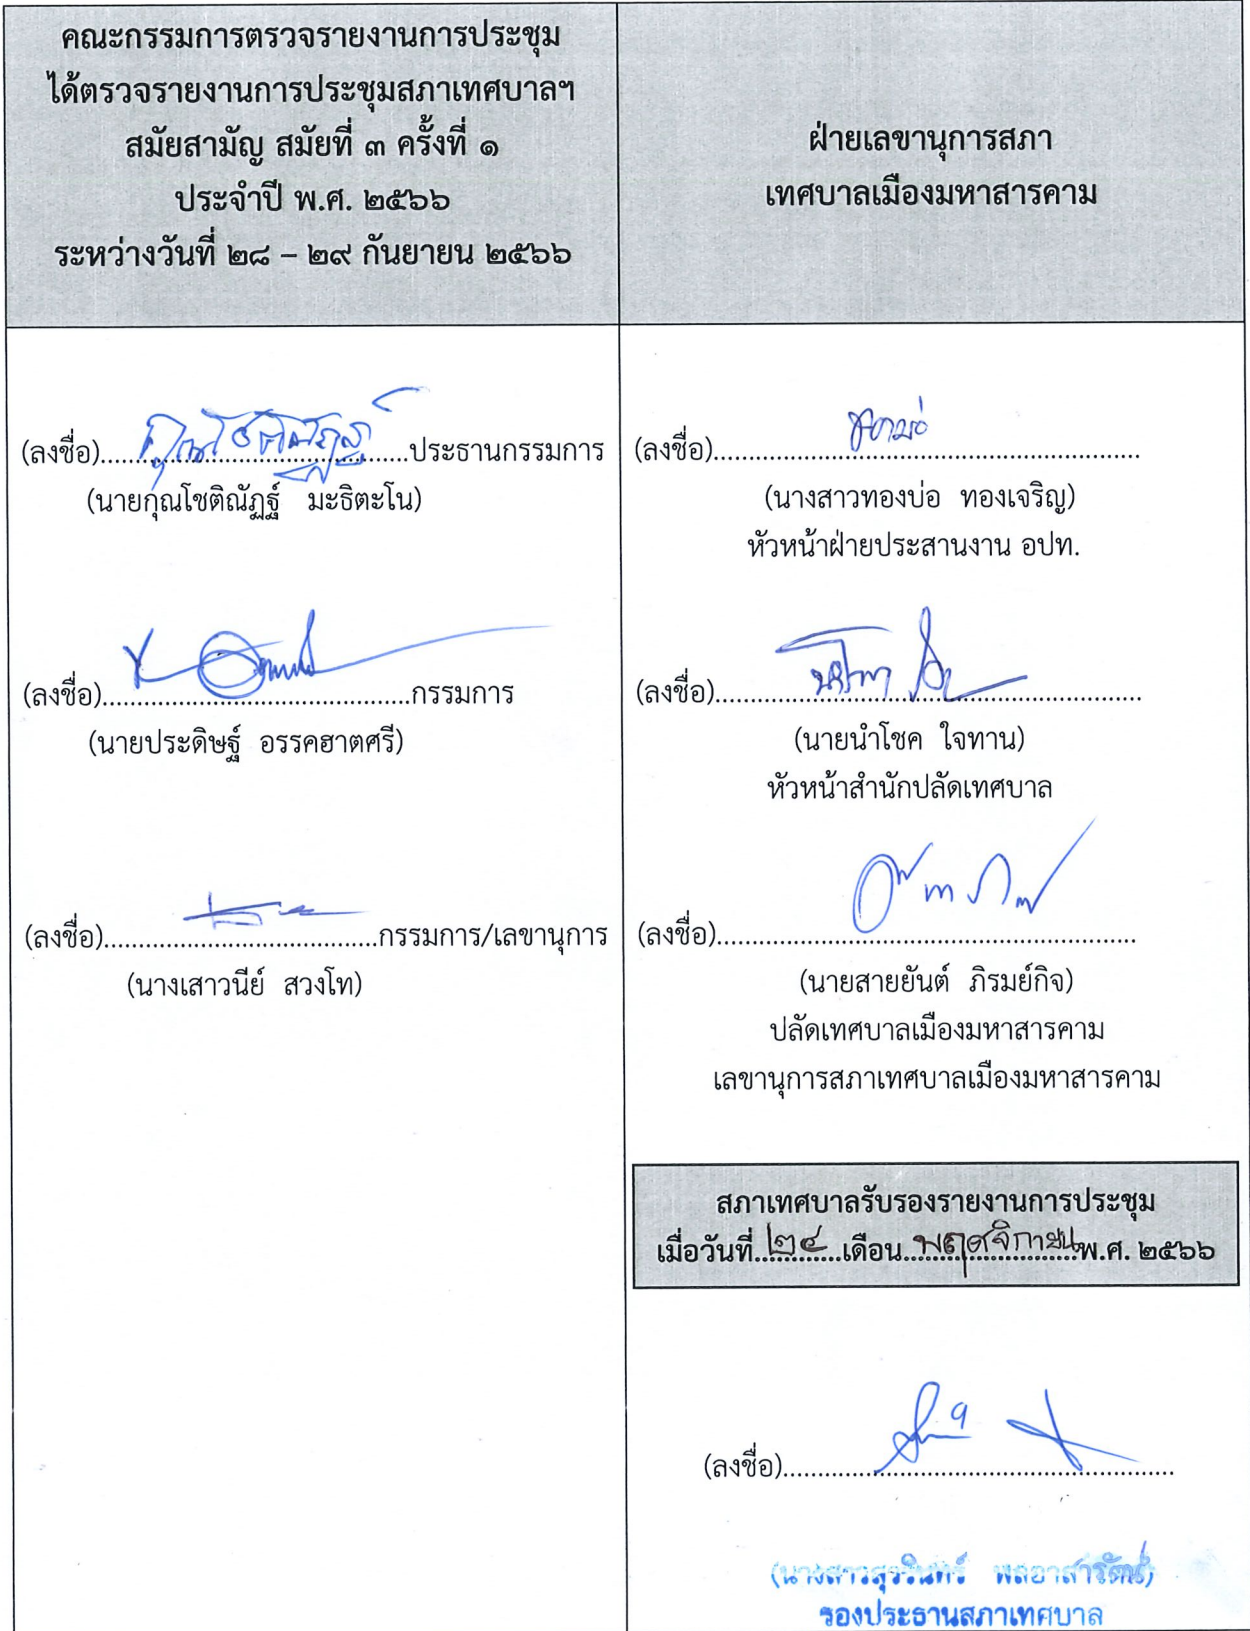 คณะกรรมการตรวจรายงานการประชุม
ได้ตรวจรายงานการประชุมสภาเทศบาลฯ
สมัยสามัญ สมัยที่ ๓ ครั้งที่ ๑
ประจำปี พ.ศ. ๒๕๖๖
ระหว่างวันที่ ๒๘ – ๒๙ กันยายน ๒๕๖๖
(ลงชื่อ)............................................ประธานกรรมการ
(นายกุณโชติณัฏฐ์ มะธิตะโน)
(ลงชื่อ)............................................กรรมการ
(นายประดิษฐ์ อรรคฮาตศรี)
(ลงชื่อ).......................................กรรมการ/เลขานุการ
(นางเสาวนีย์ สวงโท)
ฝ่ายเลขานุการสภา
เทศบาลเมืองมหาสารคาม
(ลงชื่อ).............................................................
(นางสาวทองบ่อ ทองเจริญ)
หัวหน้าฝ่ายประสานงาน อปท.
(ลงชื่อ).............................................................
(นายนำโชค ใจทาน)
หัวหน้าสำนักปลัดเทศบาล
(ลงชื่อ)............................................................
(นายสายยันต์ ภิรมย์กิจ)
ปลัดเทศบาลเมืองมหาสารคาม
เลขานุการสภาเทศบาลเมืองมหาสารคาม
สภาเทศบาลรับรองรายงานการประชุม
เมื่อวันที่ ๒๔ เดือน พฤศจิกายน พ.ศ. ๒๕๖๖
(ลงชื่อ)........................................................
(นางสาวสุรรินทร์ พลอาสารัตน์)
รองประธานสภาเทศบาล